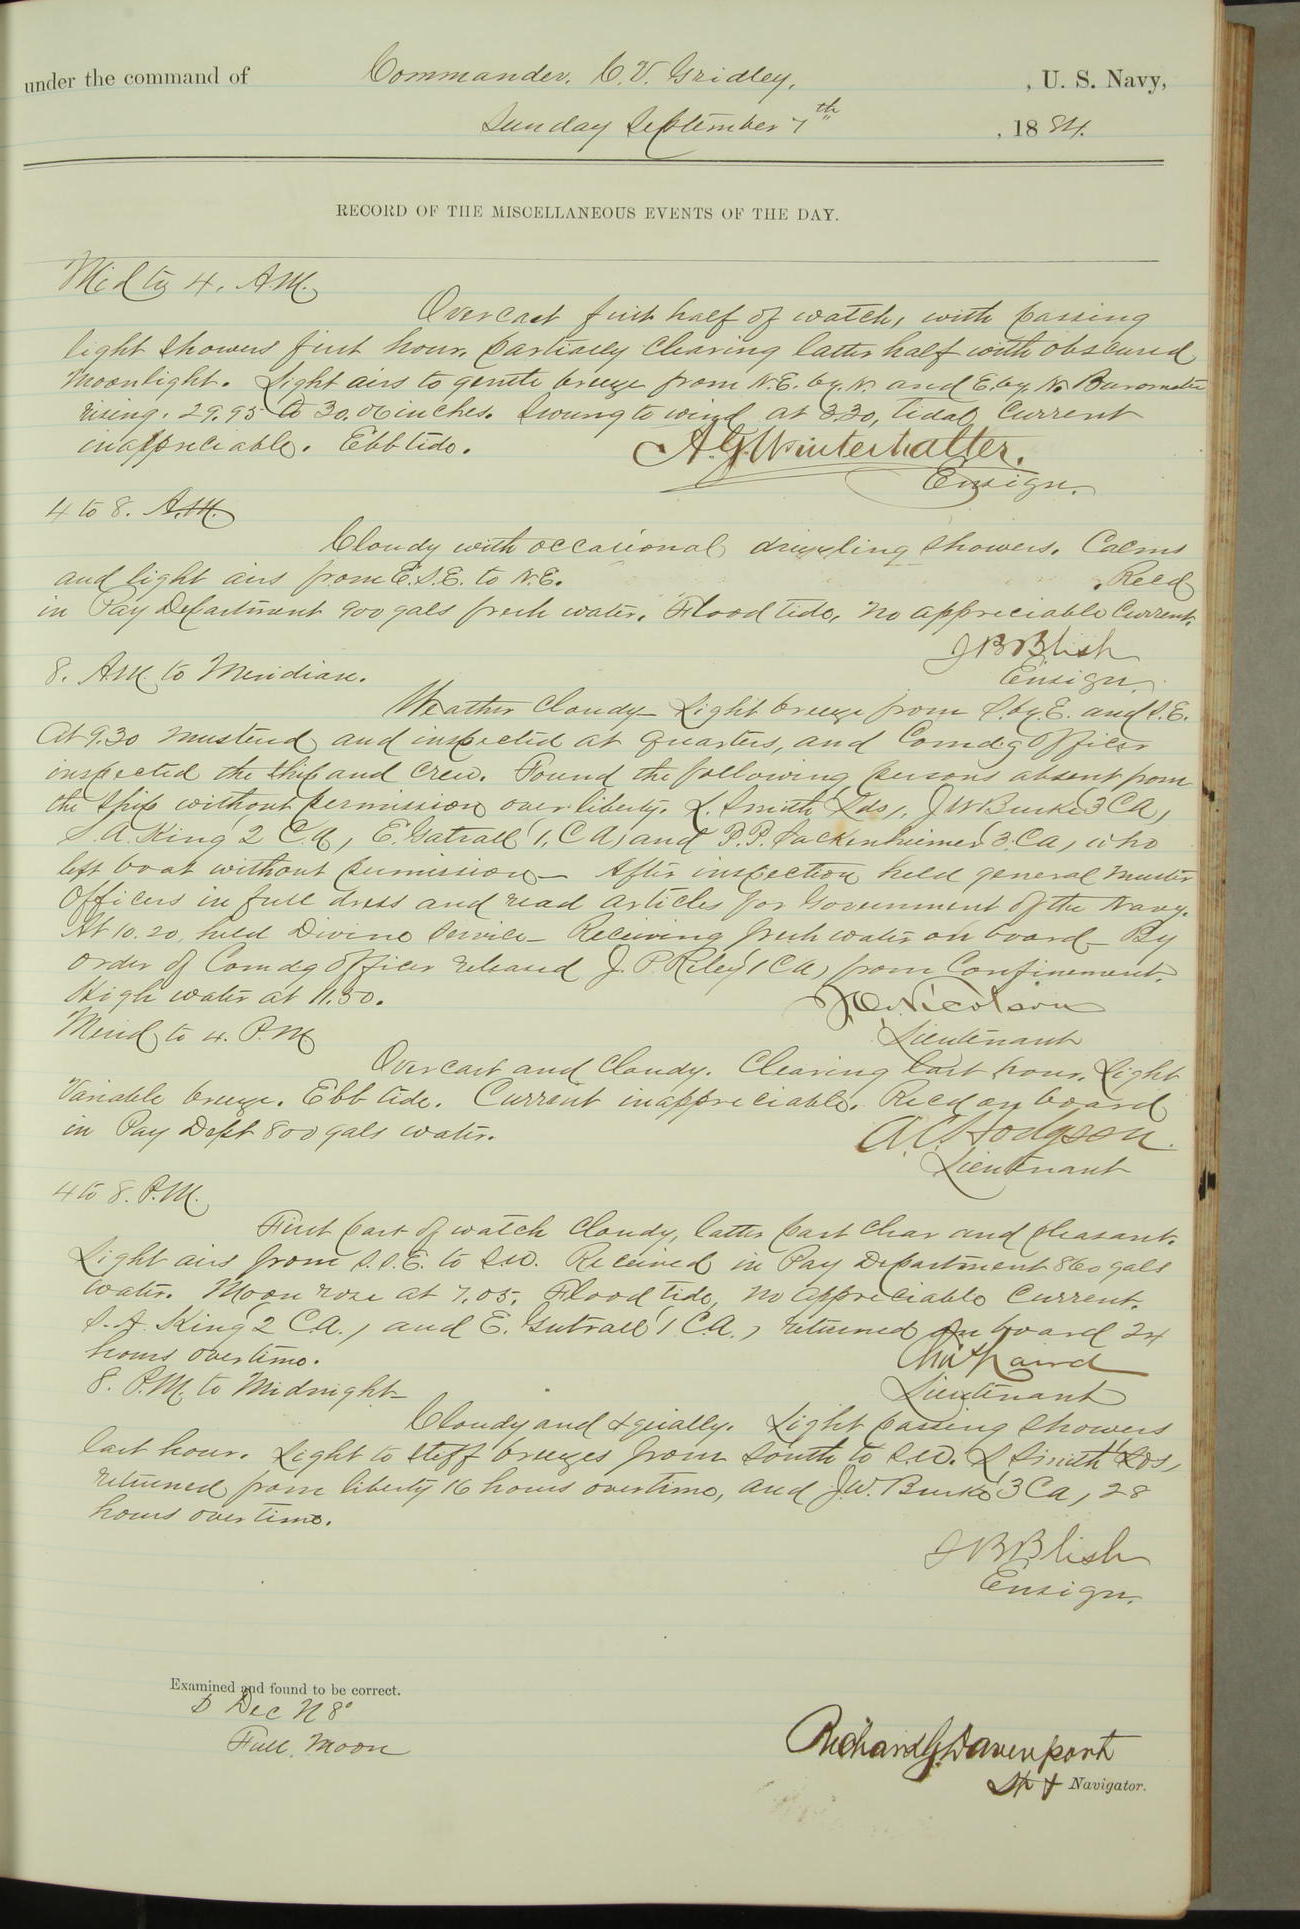 under the command of Commander. C. V. Gridley, , U. S. Navy,
Sunday September 7th , 1884.
RECORD OF THE MISCELLANEOUS EVENTS OF THE DAY.
Mid to 4. A.M.
Overcast first half of watch, with passing
light showers first hour. Partially clearing latter half with obscured
Moonlight. Light airs to gentle breeze from N.E. by. N. and E. by. N. Barometer
rising. 29.95 to 30.06 inches. Swung to wind at 3.30, tidal current
inappreciable. Ebb tide. A. G. Winterhalter.
Ensign.
4 to 8. A.M.
Cloudy with occasional drizzling showers. Calms
and light airs from E.S.E. to N.E. . Recd
in Pay Department 900 gals fresh water. Flood tide, no appreciable Current.
J B Blish
8. AM to Meridian. Ensign.
Weather Cloudy – Light breeze from S. by. E. and S.E.
At 9.30 mustered and inspected at quarters, and Comdg Officer
inspected the ship and crew. Found the following persons absent from
the ship without permission over liberty. L. Smith (Lds), J W Burke (3 CA),
S. A. King (2 C.A), E. Gatrall (1. C A) and P. P. Sackenhiemer (3. Ca), who
left boat without permission – After inspection held general muster
Officers in full dress and read articles for Government of the Navy.
At 10.20, held Divine Service – Receiving fresh water on board – By
order of Comdg Officer released J. P. Riley (1 CA) from Confinement.
High water at 11.50. Nicolson
Merid to 4. P.M Lieutenant
Overcast and Cloudy. Clearing last hour. Light
Variable breeze. Ebb tide. Current inappreciable. Recd on board
in Pay Dept 800 gals water. A. C. Hodgson.
Lieutenant
4 to 8. P.M.
First part of watch Cloudy, latter part Clear and pleasant.
Light airs from S.S.E. to S.W. Received in Pay Department 860 gals
water. Moon rose at 7.05. Flood tide, no appreciable Current.
S. A. King (2 C.A.), and E. Gutrall (1 C.A.), returned on board 24
hours overtime. Chas Laird
8. P.M. to Midnight – Lieutenant
Cloudy and squally. Light passing showers
last hour. Light to stiff breezes from South to S.W. L Smith (Lds),
returned from liberty 16 hours overtime, and J.W. Burke (3 Ca), 28
hours overtime.
J B Blish
Ensign.
Examined and found to be correct.
Dec N 8°
Full Moon
Richard G. Davenport
Navigator.